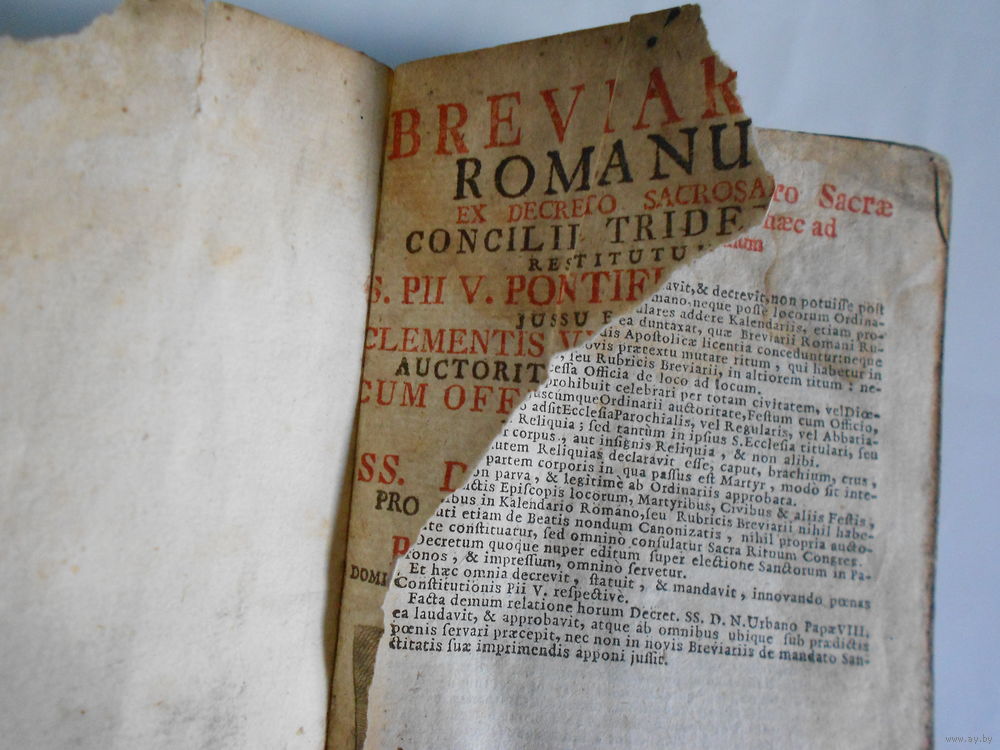 BREVIAR
ROMANU
EX DECRETO SACROSA
CONCILII TRIDE
RESTITUTU
S. PII V. PONTIFI
JUSSU E
CLEMENTIS VI
AUCTORIT
CUM OFF
SS. D
PRO
P
DOMI
ro Sacræ
hæc ad
num
avit, & decrevit, non potuiſſe poſt
mano, neque poſſe locorum Ordina-
ulares addere Kalendariis, etiam pro-
ea duntaxat, quæ Breviarii Romani Ru-
dis Apoſtolicæ licentia conceduntur: neque
ovis prætextu mutare ritum, qui habetur in
, ſeu Rubricis Breviarii, in altiorem ritum; ne-
ceſſa Officia de loco ad locum.
prohibuit celebrari per totam civitatem, vel Diœ-
uscumque Ordinarii auctoritate, Feſtum cum Officio,
o adſit Eccleſia Parochialis, vel Regularis, vel Abbatia-
Reliquia; ſed tantùm in ipſius S. Eccleſia titulari, ſeu
r corpus, aut inſignis Reliquia, & non alibi.
utem Reliquias declaravit eſſe, caput, brachium, crus,
partem corporis in qua paſſus eſt Martyr, modò ſit inte-
on parva, & legitimè ab Ordinariis approbata.
nctis Epiſcopis locorum, Martyribus, Civibus & aliis Feſtis,
ibus in Kalendario Romano, ſeu Rubricis Breviarii nihil habe-
uti etiam de Beatis nondum Canonizatis, nihil propria aucto-
ate conſtituatur, ſed omnino conſulatur Sacra Rituum Congreg.
Decretum quoque nuper editum ſuper electione Sanctorum in Pa-
ronos, & impreſſum, omnino ſervetur.
Et hæc omnia decrevit, ſtatuit, & mandavit, innovando pœnas
Conſtitutionis Pii V. reſpectivè.
Facta demum relatione horum Decret. SS. D. N. Urbano Papæ VIII.
ea laudavit, & approbavit, atque ab omnibus ubique ſub prædictis
pœnis ſervari præcepit, nec non in novis Breviariis de mandato San-
ctitatis ſuæ imprimendis apponi juſſit.
www.ay.by